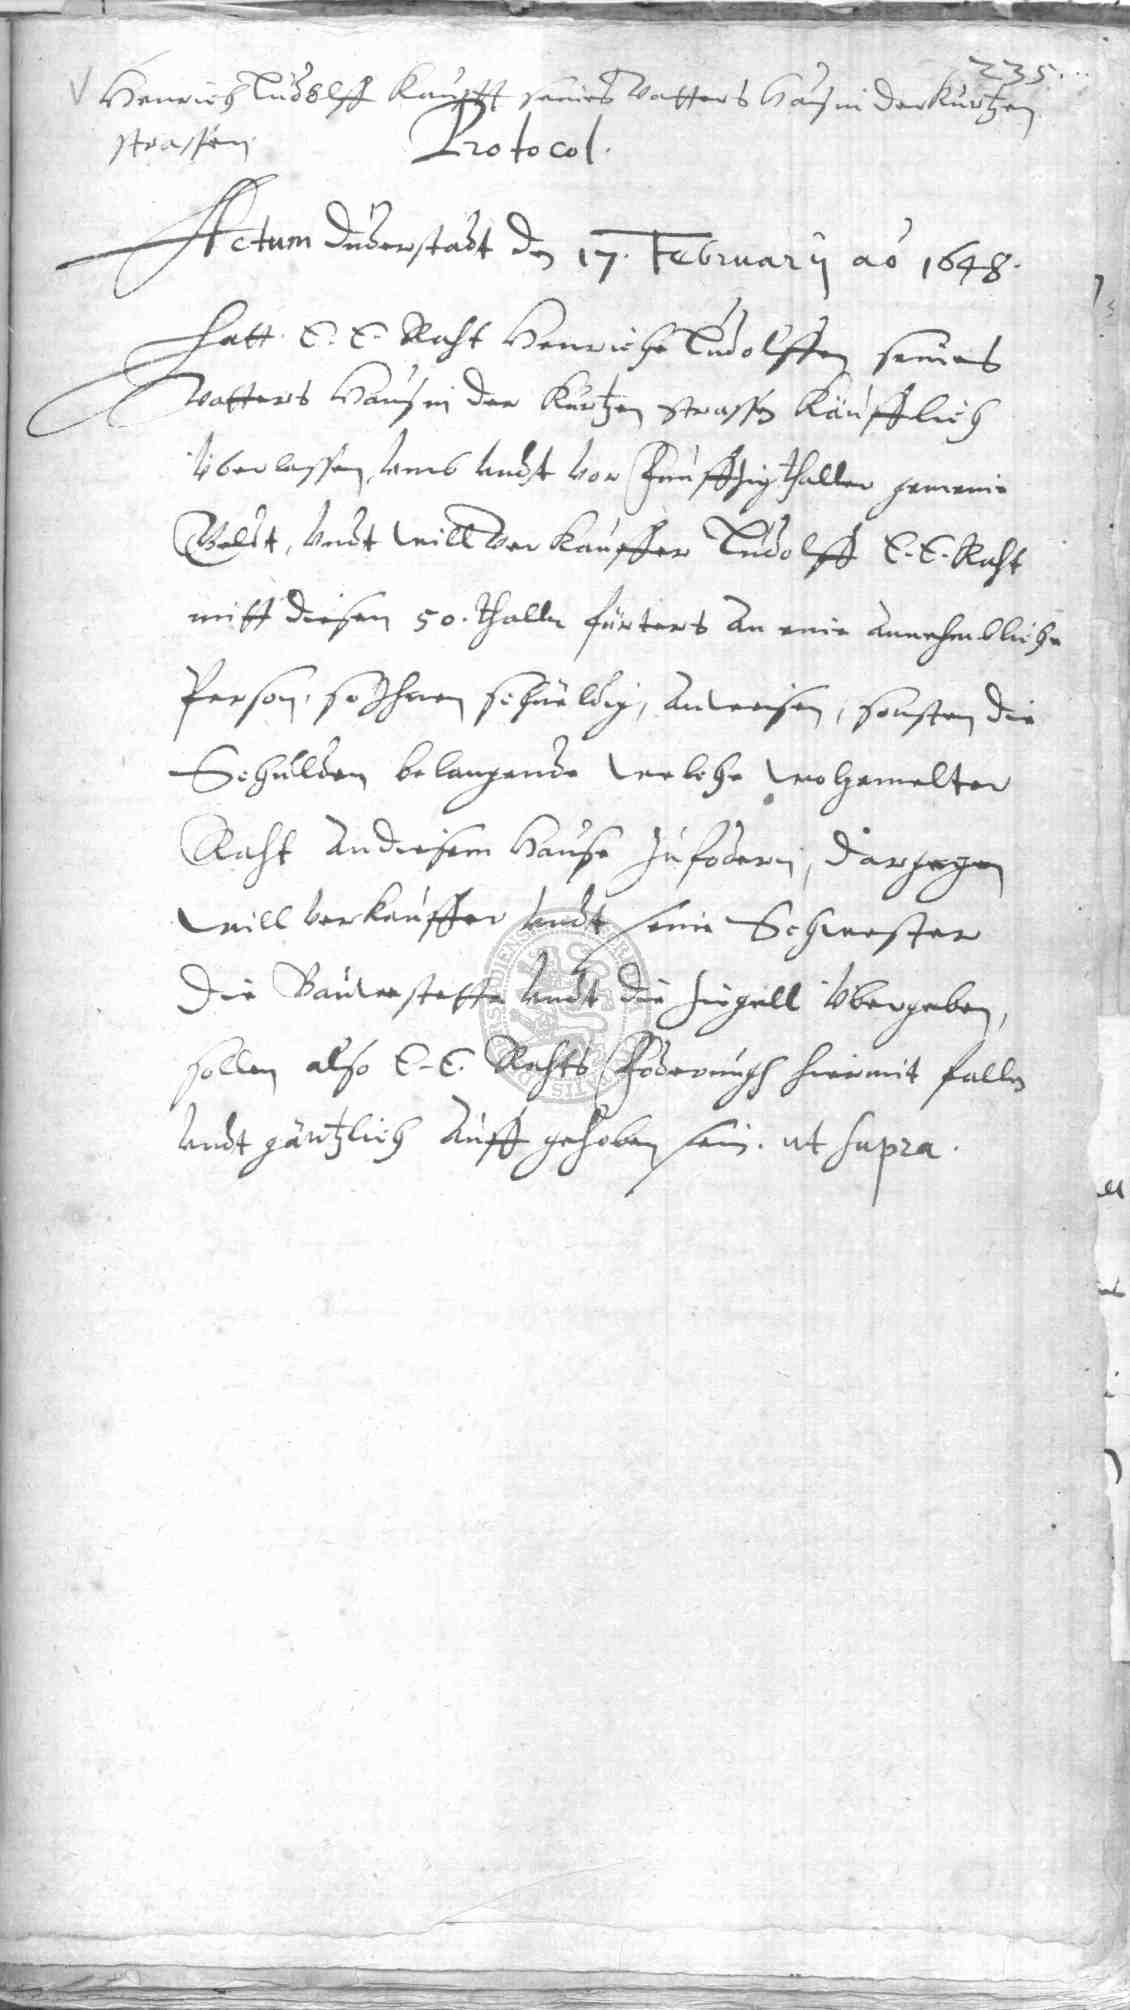 235.
Henrich Ludolff Kaufft seines Vatters Hauß in der Kurtzen
strassen.
Protocol.
Actum Duderstadt den 17. Februarij aö 1648.
Hatt E. E. Raht Henriche Ludolffen seines
Vatters Hauß in der Kurtzen strassen Käufflich
Überlassen, umb undt vor Funffzig thaller gemeine
Geldt, undt will Verkauffer Ludolff E. E. Raht
mitt diesen 50. thalln fürters an eine annehmbliche
Person, so Ihnen schüldig, anweisen, sonsten die
Schulden belangende welche wolgemelter
Raht an diesem Hause zu fodern, dargegen
will verkauffer undt seine Schwester
die Bauwestette undt die ziegell übergeben,
sollen also E. E. Rahts Foderungh hiermit fallen
undt gäntzlich auff gehoben sein. ut supra.